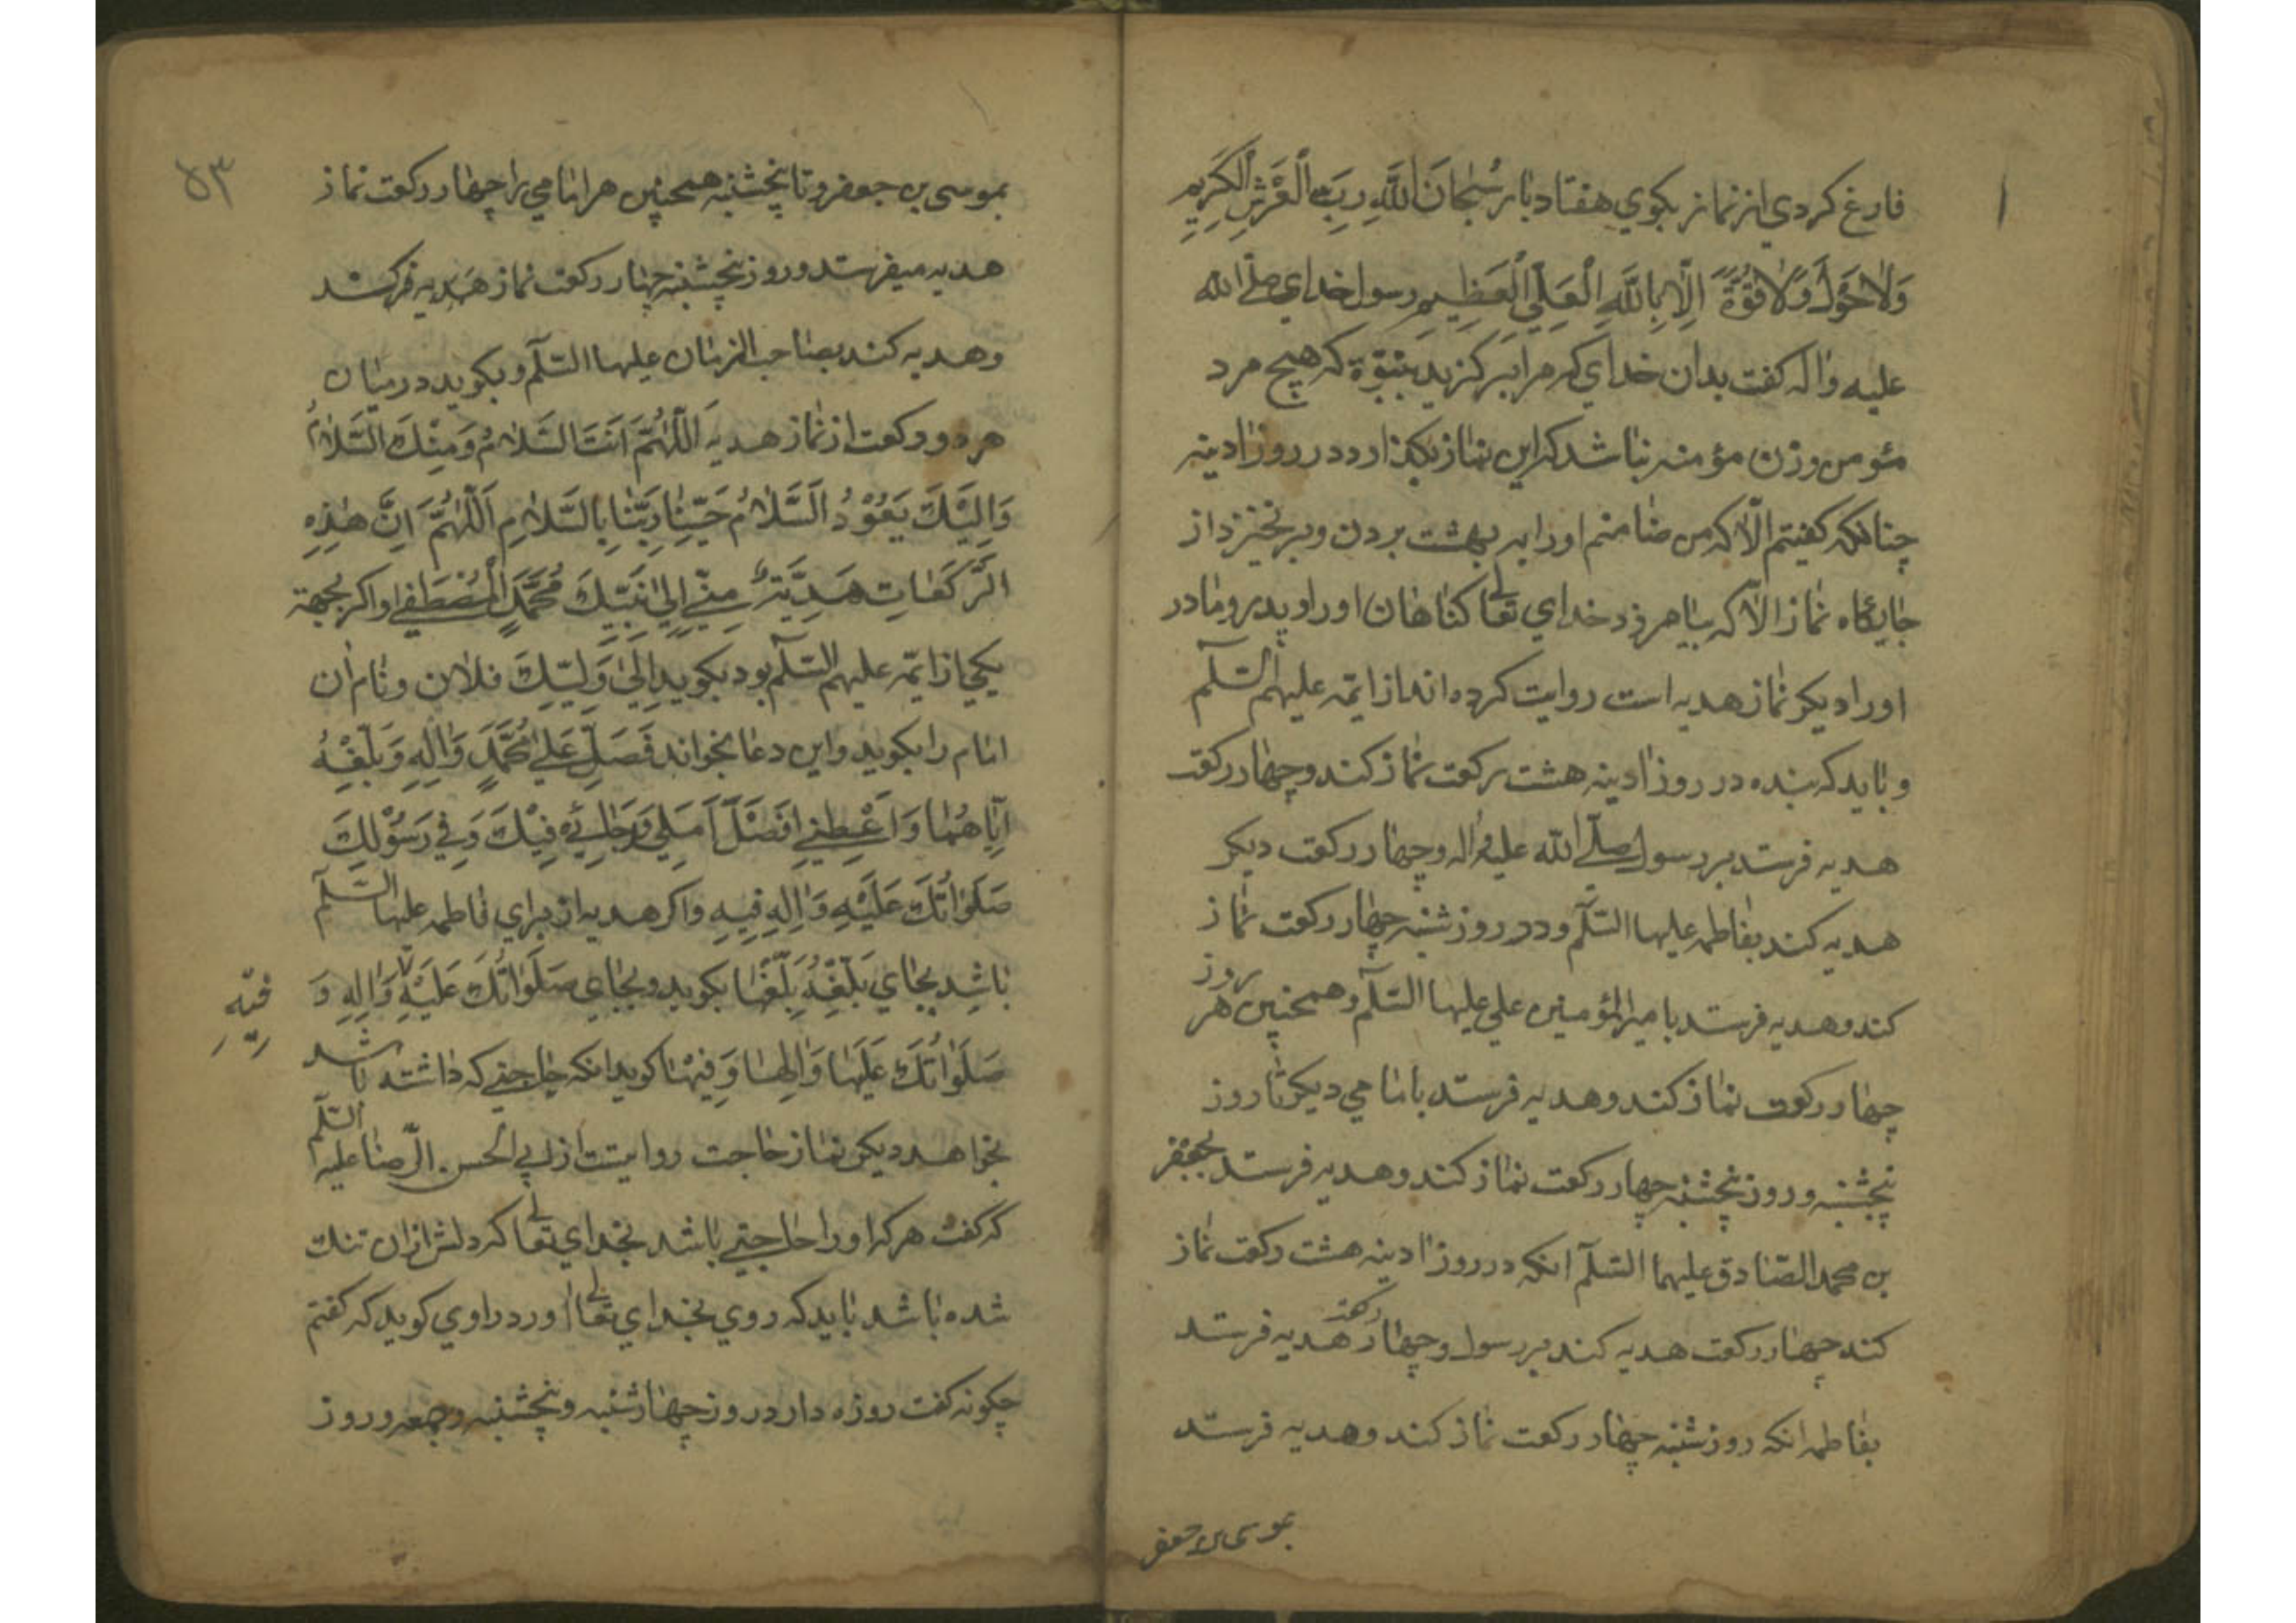 فارغ کردي از نماز بکوي هفتاد بار سُبْحَانَ اللَّهِ رَبِّ الْعَرْشِ الْكَرِيمِ
وَلَا حَوْلَ وَلَا قُوَّةَ اِلَّا بِاللَّهِ الْعَلِيِّ الْعَظِيمِ رسول خداي صلّى الله
عليه واله كفت بدان خداي كه مرا بر كزيد بنبوّة كه هيچ مرد
مئومن وزن مؤمنه نباشد كه اين نماز بكذارد در روز ادينه
چنانكه كفيتم الّا كه من ضامنم اورا به بهشت بردن وبر نخيزد از
جايكاه نماز الّا كه بيامرزد خداي تعالى كناهان اورا و پدر و مادر
اورا ديكر نماز هديه است روايت كرده اند از ايمّه عليهم السّلم
و بايد كه بنده در روز ادينه هشت ركعت نماز كند و چهار ركعت
هديه فرستد بر رسول صلّى الله عليه واله و چهار ركعت ديكر
هديه كند بفاطمه عليها السّلم ودر روز شنبه چهار ركعت نماز
كند و هديه فرستد بامير المؤمنين علي عليها السّلم و همچنين هر روز
چهار ركعت نماز كند و هديه فرستد بامامي ديكر تا روز
پنجشنبه و روز پنجشنبه چهار ركعت نماز كند و هديه فرستد بجعفر
بن محمد الصّادق عليهما السّلم انكه در روز ادينه هشت ركعت نماز
كند چهار ركعت هديه كند بر رسول و چهار ركعت هديه فرستد
بفاطمه انكه روز شنبه چهار ركعت نماز كند و هديه فرستد
بموسى بن جعفر
۵۳
بموسى بن جعفر و تا پنجشنبه همچنين هر امامي را چهار ركعت نماز
هديه ميفرستد و روز پنچشنبه چهار ركعت نماز هديه فرستد
و هديه كند بصاحب الزمان عليها السّلم و بكويد در ميان
هر دو ركعت از نماز هديه اَللّٰهُمَّ اَنْتَ السَّلَامُ وَمِنْكَ السَّلَامُ
وَاِلَيْكَ يَعُوْدُ السَّلَامُ حَيِّنَا رَبَّنَا بِالسَّلَامِ اَللّٰهُمَّ اِنَّ هٰذِهِ
الرَّكَعَاتِ هَدِيَّةٌ مِنِّي اِلٰى نَبِيِّكَ مُحَمَّدٍ الْمُصْطَفٰى و اكر بجهة
يكي از ايمّه عليهم السّلم بود بكويد اِلٰى وَلِيِّكَ فلان و نام ان
امام را بكويد و اين دعا بخواند فَصَلِّ عَلٰى مُحَمَّدٍ وَاٰلِهِ وَبَلِّغْهُ
اِيَّاهُمَا وَاَعْطِنِي اَفْضَلَ اَمَلِي وَرَجَائِي فِيْكَ وَفِي رَسُوْلِكَ
صَلَوَاتُكَ عَلَيْهِ وَاٰلِهِ فِيهِ واكر هديه از براي فاطمه عليها السّلم
باشد بجاي بَلِّغْهُ بَلِّغْهَا بكويد و بجاي صَلَوَاتُكَ عَلَيْهِ وَاٰلِهِ وَ
فِيْهِ
صَلَوَاتُكَ عَلَيْهَا وَاٰلِهَا وَفِيْهَا كويد انكه حاجتي كه داشته باشد
بخواهد ديكر نماز حاجت روايتست از ابي الحسن الرّضا عليه السّلم
كه كفت هركه اورا حاجتي باشد بخداي تعالى كه دلش ازان تنك
شده باشد بايد كه روي بخداي تعالى اورد راوي كويد كه كفتم
چكونه كفت روزه دار در روز چهارشنبه و پنچشنبه و جمعه و روز